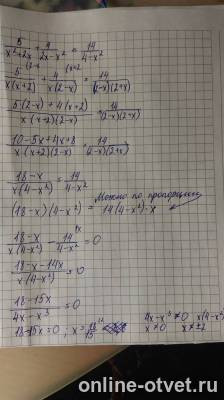 5/(x²+2x) + 4/(2x-x²) = 14/(4-x²)
5/(x(x+2)) + 4/(x(2-x)) = 14/((2-x)(2+x))
(5(2-x)+4(x+2))/(x(x+2)(2-x)) = 14/((2-x)(2+x))
(10-5x+4x+8)/(x(x+2)(2-x)) = 14/((2-x)(2+x))
(18-x)/(x(4-x²)) = 14/(4-x²)
Можно по пропорции
(18-x)(4-x²) = 14(4-x²)·x
(18-x)/(x(4-x²)) - 14/(4-x²) = 0
(18-x-14x)/(x(4-x²)) = 0
(18-15x)/(4x-x³) = 0
4x-x³≠0
18-15x=0, x=18/15
x≠0 x≠±2
online-otvet.ru